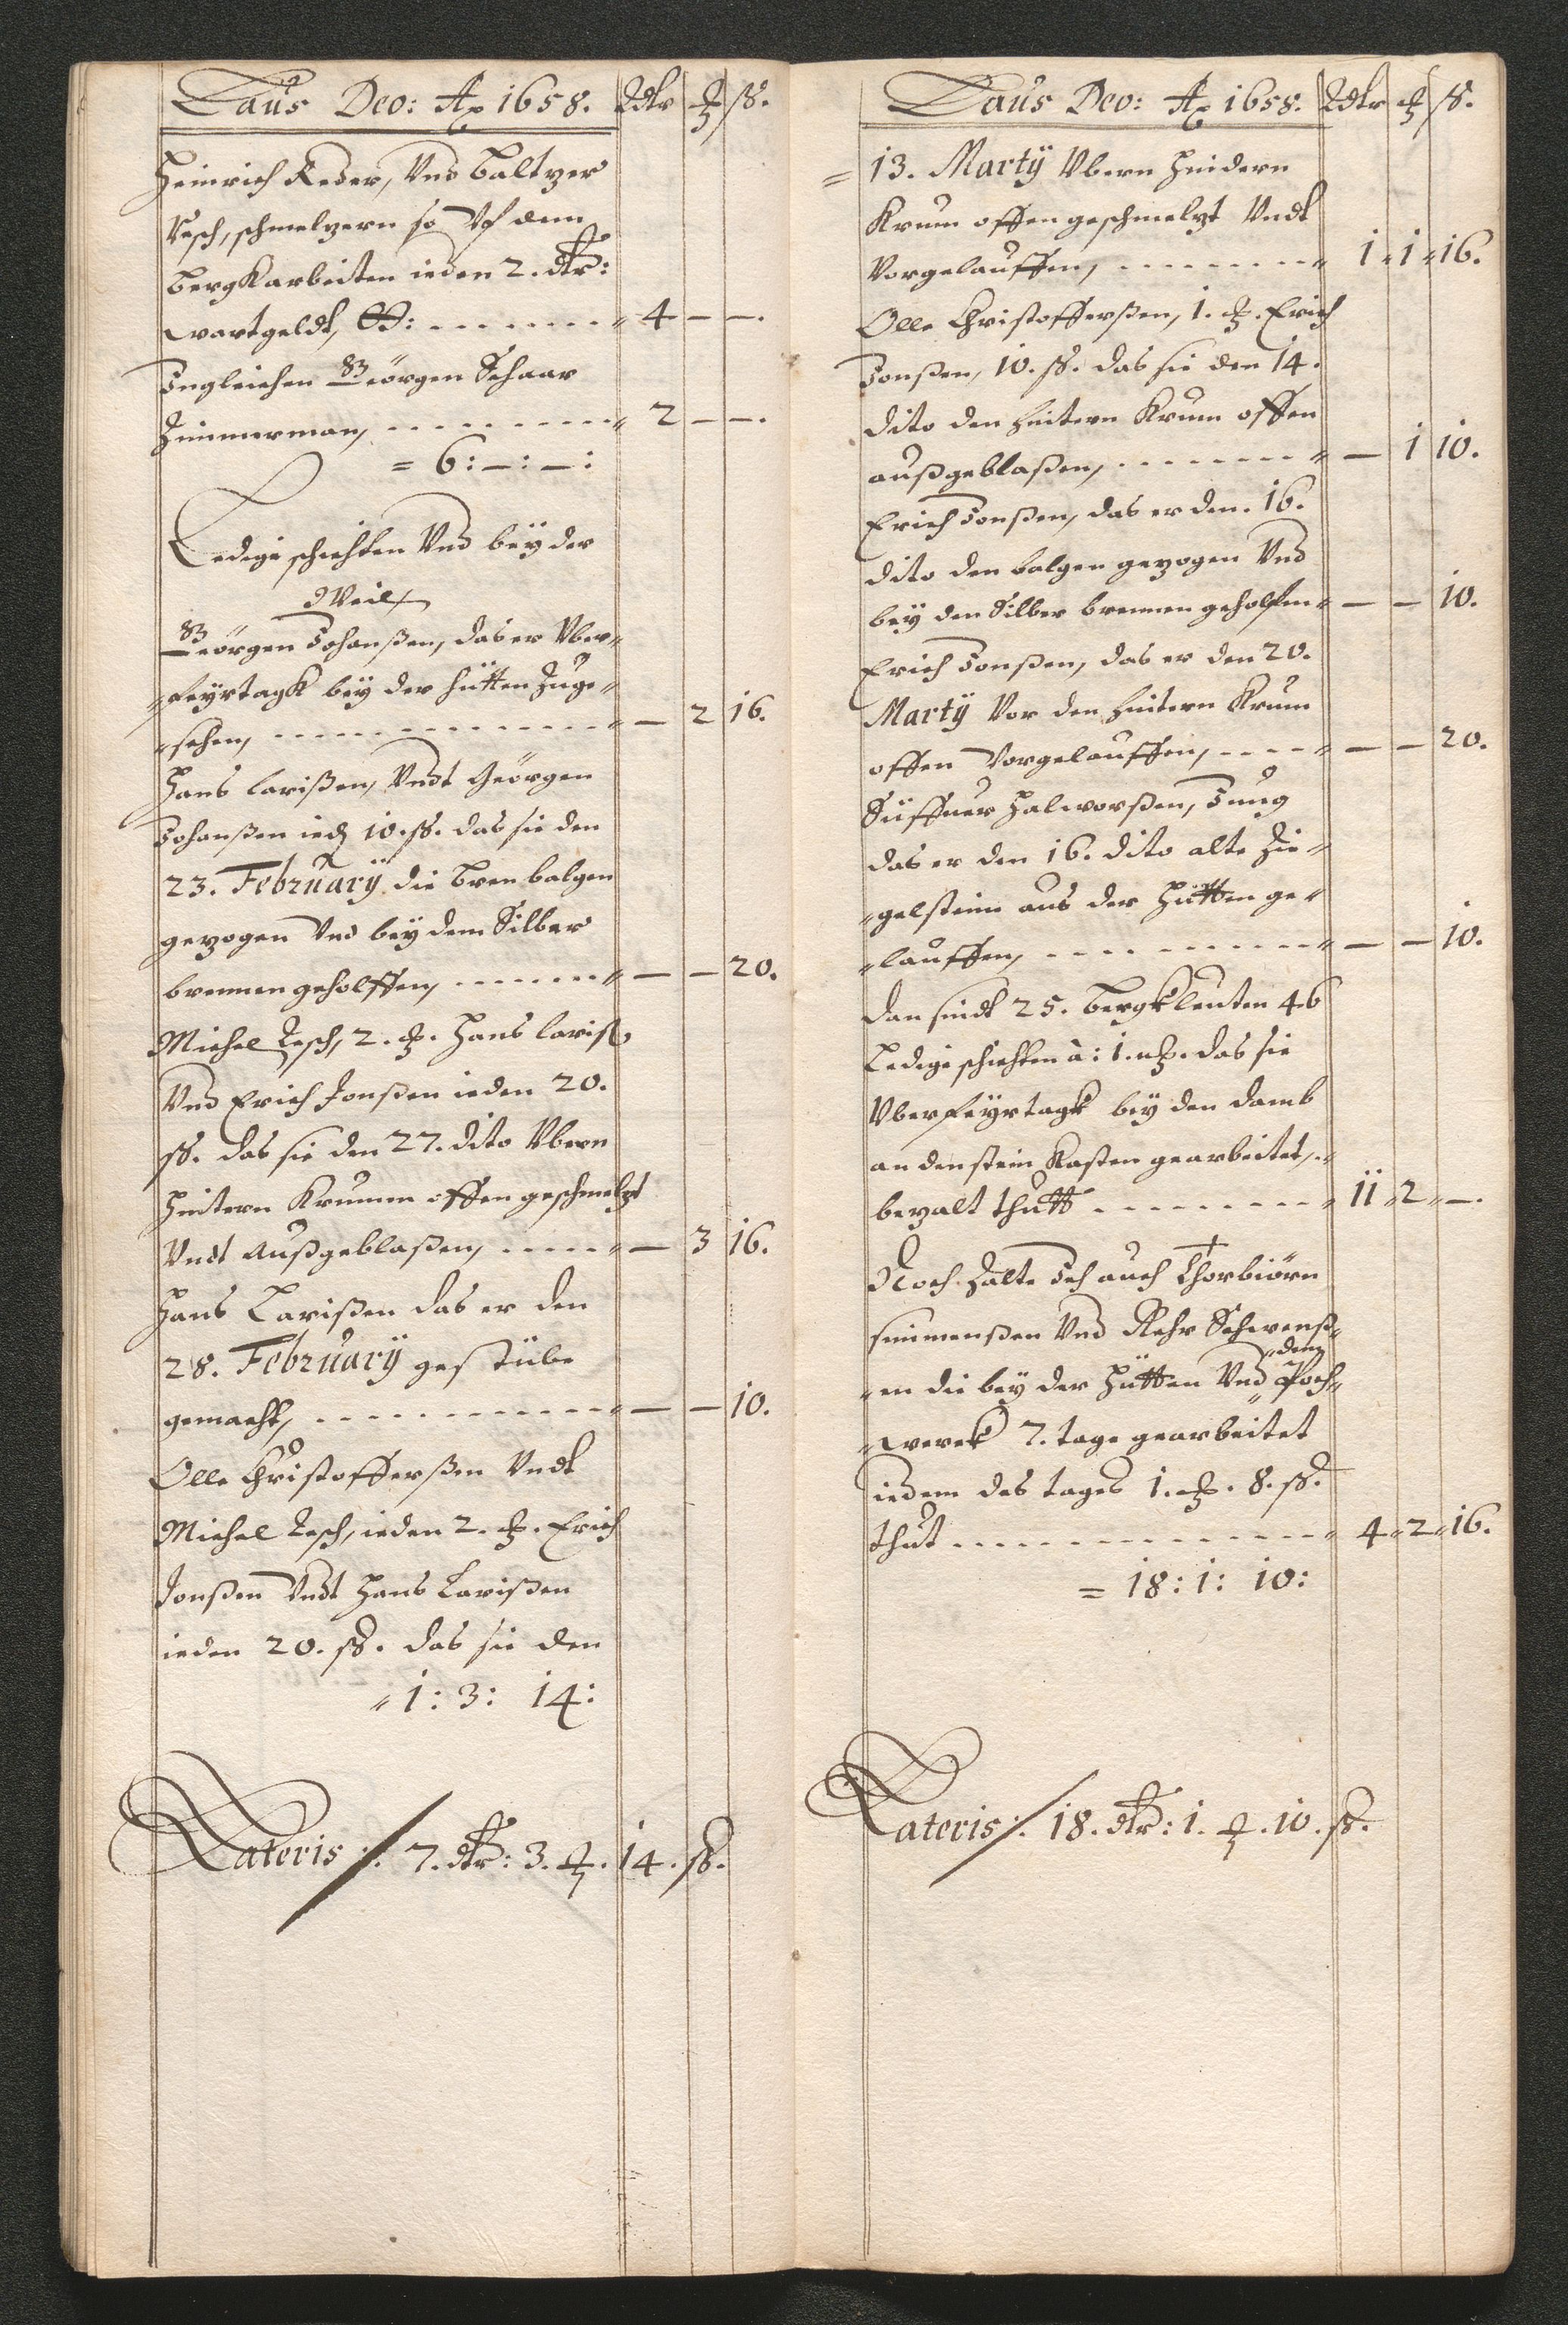 Laus Deo: Ao 1658. Rdlr ℳ ß.
Heinrich Reder, Vnd Baltzer
Resch, schmelzern so Vf dem
bergk arbeiten ieden 2. dlr:
wartgeldt, - - - - - - - 4 — —.
Ingleichen Geörgen Schaar
Zimmerman, - - - - - - - - - 2 — —.
= 6: —: —:
Ledige schichten Vnd bey der
Weil
Geörgen Johanßen, das er Vber-
-feyrtagk bey der hütten Zuge-
-sehen, - - - - - - - - - - - — 2 16.
Hans larißen, Vndt Geörgen
Johanßen ied 10. ß. das sie den
23. February die bren balgen
gezogen Vnd bey dem Silber
brennen geholffen, - - - - - - — — 20.
Michel Resch, 2. ℳ. Hans lariß
Vnd Erich Jonßen ieden 20.
ß. das sie den 27. dito Vbern
hintern Krummen offen geschmelzt
Vndt Außgeblaßen, - - - - - — 3 16.
Hans Larißen das er den
28. February gestübe
gemacht, - - - - - - - - - - - — — 10.
Olle Christofferßen Vndt
Michel Resch, ieden 2. ℳ. Erich
Jonßen Vndt Hans Larißen
ieden 20. ß. das sie den
1: 3: 14:
Lateris ∕. 7. dlr: 3. ℳ. 14. ß.
Laus Deo: Ao 1658. Rdlr ℳ ß.
= 13. Marty Vbern hindern
Krum offen geschmelzt Vndt
Vorgelauffen, - - - - - - - - 1 1 16.
Olle Christofferßen, 1. ℳ. Erich
Jonßen, 10. ß. das sie den 14.
dito den hintern Krum offen
außgeblaßen, - - - - - - - - — 1 10.
Erich Jonßen, das er den. 16.
dito den balgen gezogen Vnd
bey den Silber brennen geholffen — — 10.
Erich Jonßen, das er den 20.
Marty Vor den hintern Krum
offen Vorgelauffen, - - - - — — 20.
Süffuer Halworßen, Jung
das er den 16. dito alte Zie-
-gelsteine aus der Hütten ge-
-lauffen, - - - - - - - - - - — — 10.
Dan sindt 25. bergkleuten 46
Ledige schichten à: 1. ℳ. das sie
Vber feyrtagk bey den damb
an den stein Kasten gearbeitet,
bezalt thutt - - - - - - - - 11 2 —.
Noch Zalte Ich auch Thorbiörn
simmenßen Vnd Rehr Schwenß-
-en die bey der Hütten Vnd dem Poch-
-werck 7. tage gearbeitet
iedem des tages 1. ℳ. 8. ß.
thut - - - - - - - - - - - - 4 2 16.
= 18: 1: 10:
Lateris ∕. 18. dlr: 1. ℳ. 10. ß.